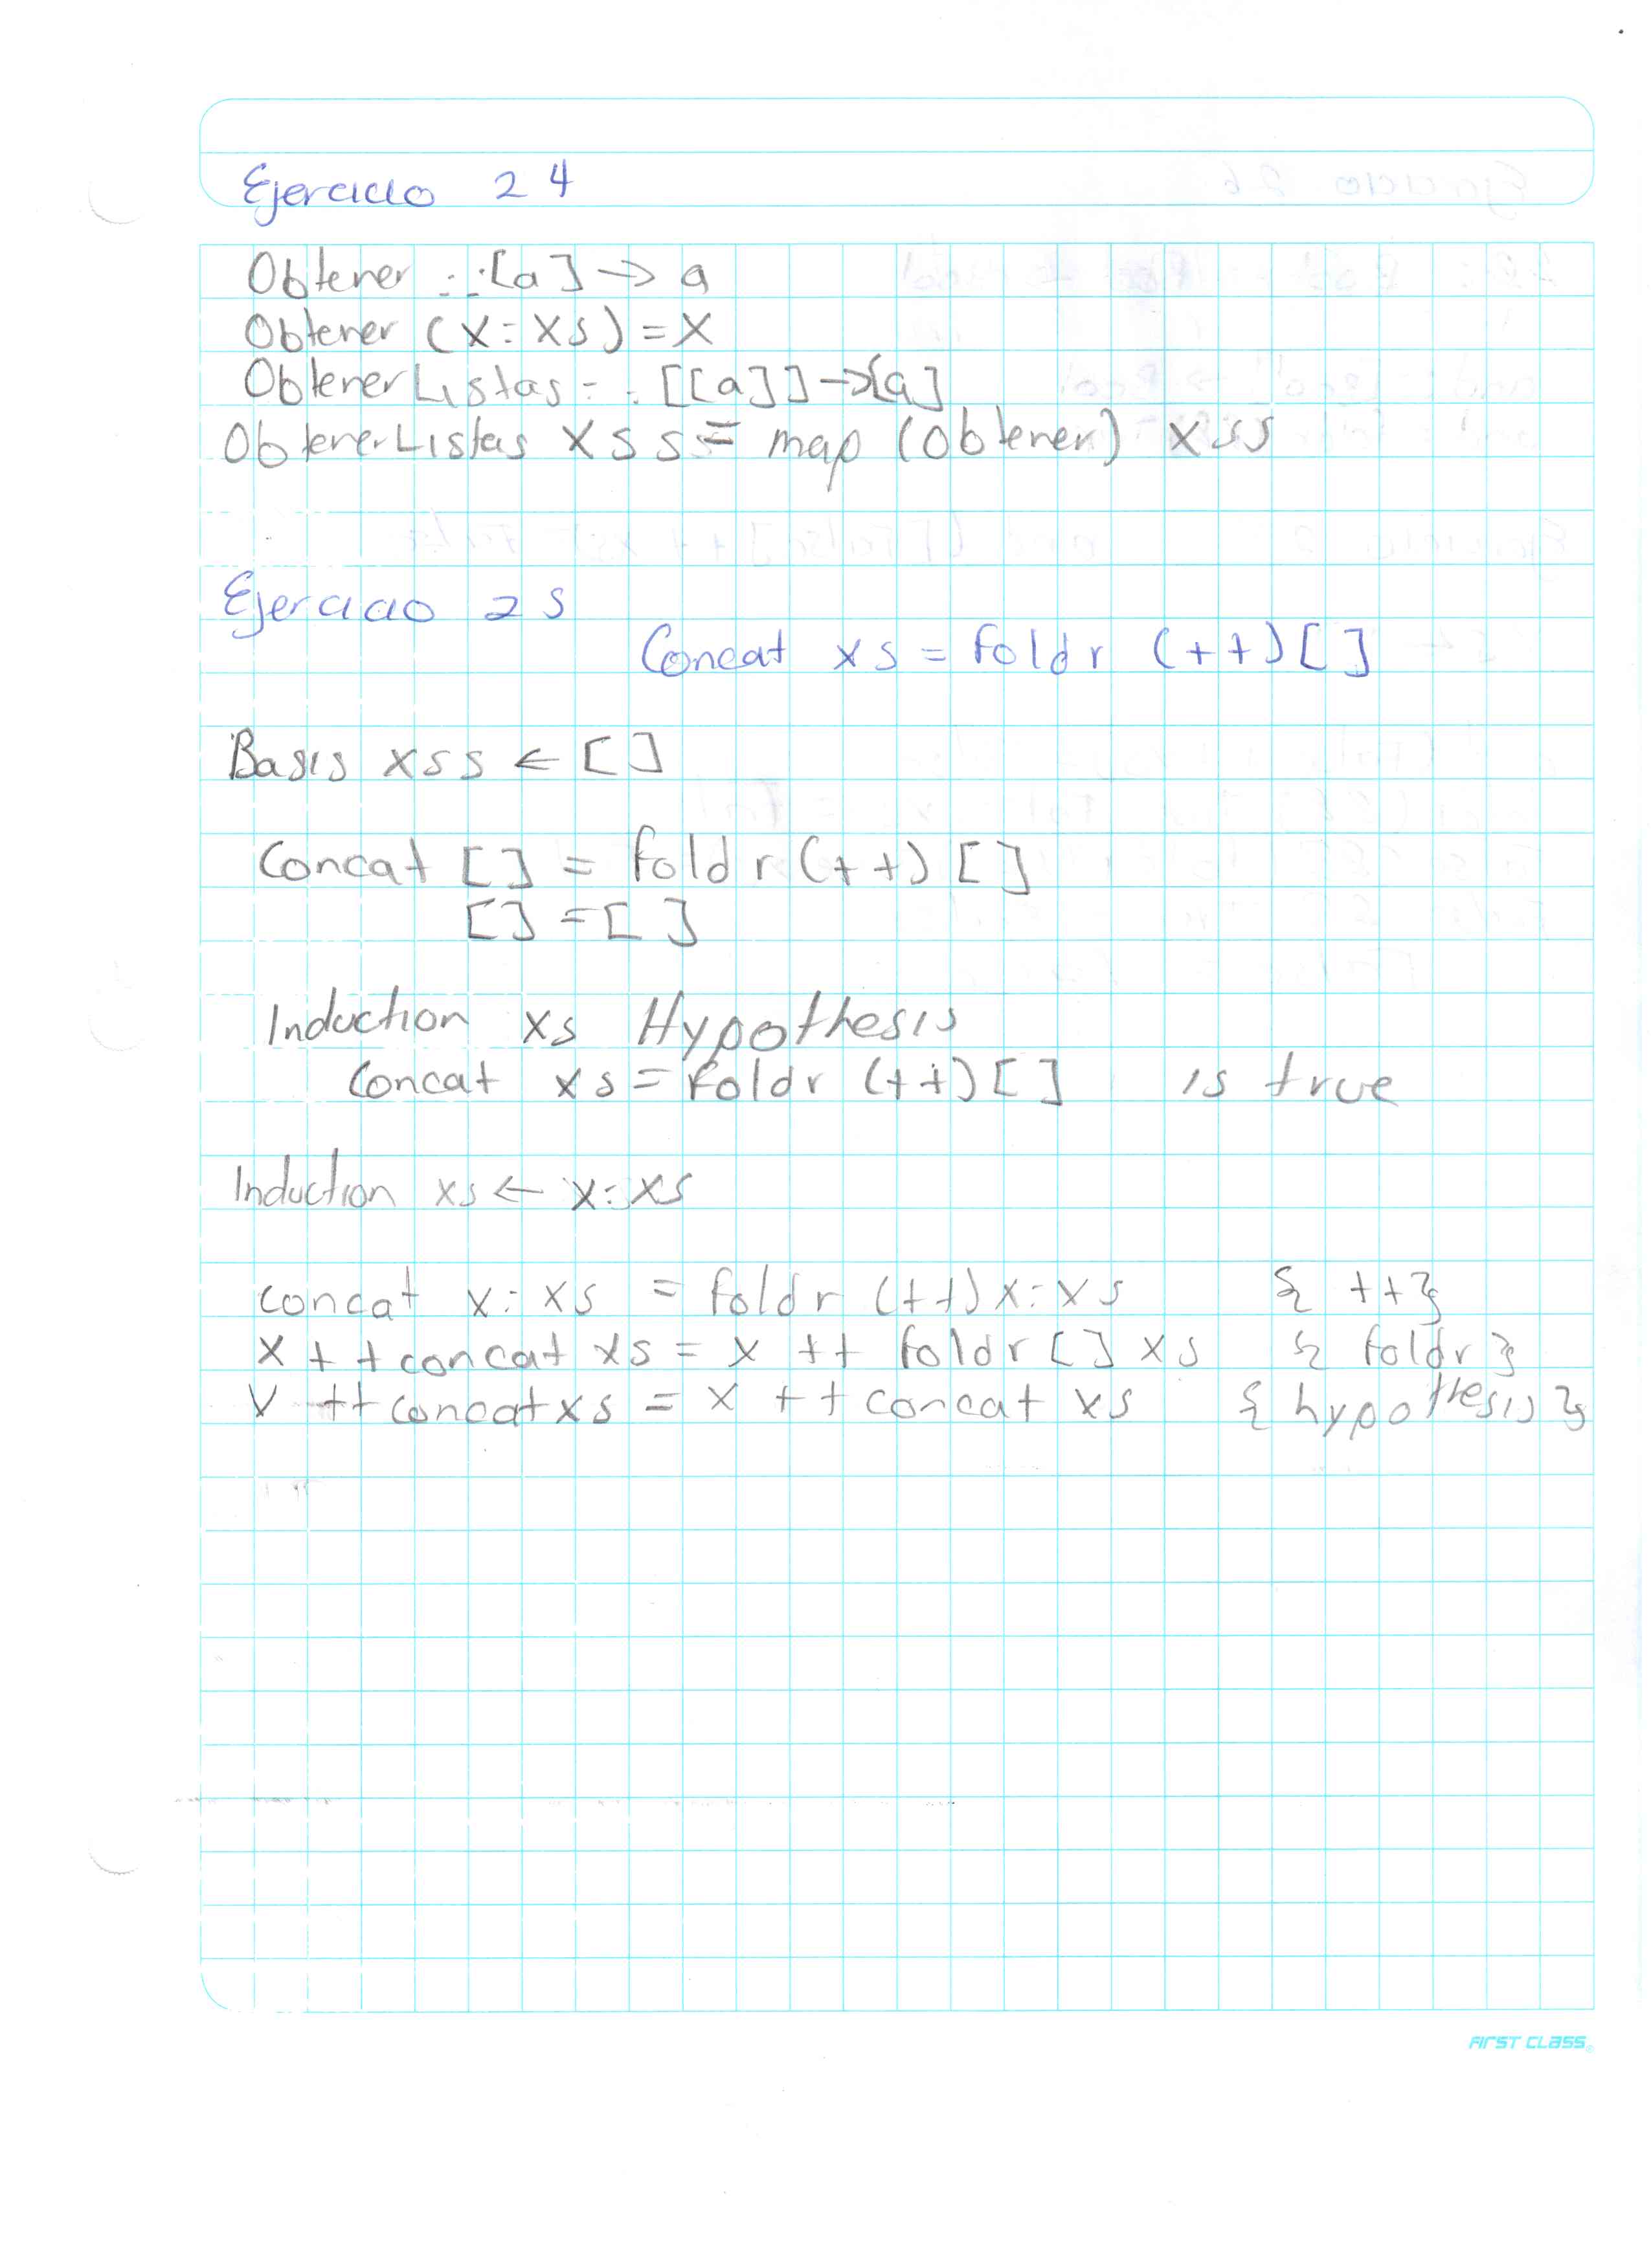 Ejercicio 24
Obtener :: [a] -> a
Obtener (x:xs) = x
ObtenerListas :: [[a]] -> [a]
ObtenerListas xss = map (obtener) xss
Ejercicio 25
Concat xs = foldr (++) []
Basis xss ← []
Concat [] = foldr (++) []
[] = []
Induction xs Hypothesis
Concat xs = foldr (++) [] is true
Induction xs ← x:xs
concat x:xs = foldr (++) x:xs { ++}
x ++ concat xs = x ++ foldr [] xs { foldr }
x ++ concat xs = x ++ concat xs { hypothesis }
FIRST CLASS